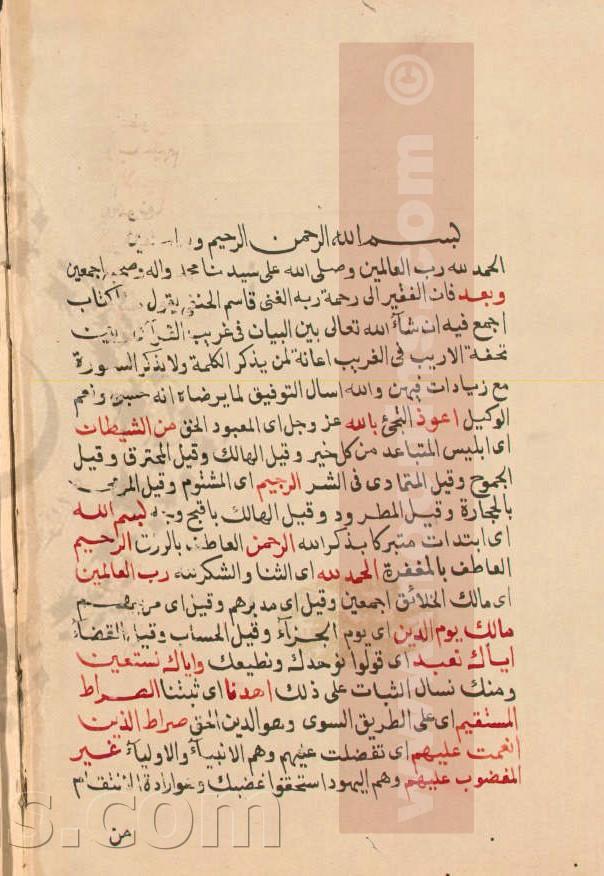 بسم الله الرحمن الرحيم وبه نستعين
الحمد لله رب العالمين وصلى الله على سيدنا محمد واله وصحبه اجمعين
وبعد فان الفقير الى رحمة ربه الغنى قاسم الحنفى يقول كتاب
اجمع فيه ان شآء الله تعالى بين البيان فى غريب القرآن وبين
تحفة الاريب فى الغريب اعانة لمن يذكر الكلمة ولا يذكر السورة
مع زيادات فيهن والله اسال التوفيق لما يرضاه انه حسبى ونعم
الوكيل اعوذ التجئ بالله عز وجل اى المعبود الحق من الشيطان
اى ابليس المتباعد من كل خير وقيل الهالك وقيل المحترق وقيل
الجموح وقيل المتمادى فى الشر الرجيم اى المشئوم وقيل المرمى
بالحجارة وقيل المطرود وقيل الهالك باقبح بسم الله
اى ابتدات متبركا بذكر الله الرحمن العاطف بالرزق الرحيم
العاطف بالمغفرة الحمد لله اى الثنا والشكر لله رب العالمين
اى مالك الخلائق اجمعين وقيل اى مدبرهم وقيل اى مربيهم
مالك يوم الدين اى يوم الجزآء وقيل الحساب وقيل القضآء
اياك نعبد اى قولوا نوحدك ونطيعك واياك نستعين
ومنك نسال الثبات على ذلك اهدنا اى ثبتنا الصراط
المستقيم اى على الطريق السوى وهو الدين الحق صراط الذين
انعمت عليهم اى تفضلت عليهم وهم الانبيآء والاوليآء غير
المغضوب عليهم وهم اليهود استحقوا غضبك وهو ارادة الانتقام
من
s.com
©